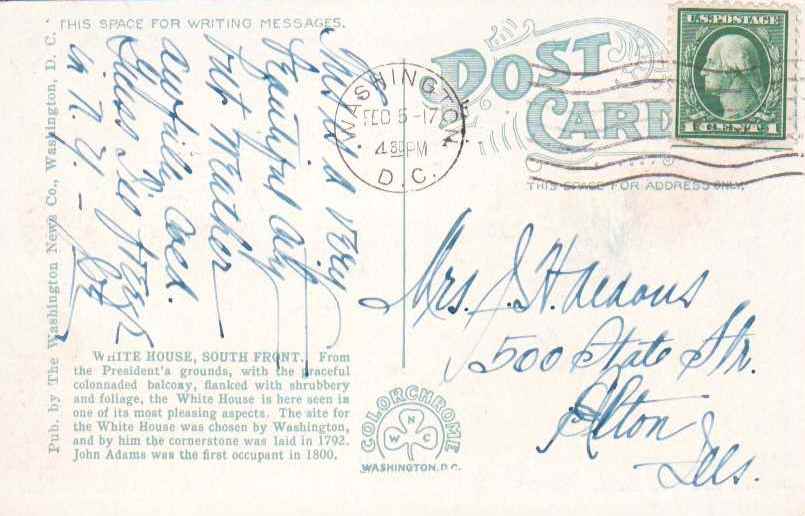 THIS SPACE FOR WRITING MESSAGES.
POST CARD
U.S. POSTAGE
1 CENT 1
WASHINGTON,
FEB 5-17
4 30 PM
D.C.
THIS SPACE FOR ADDRESS ONLY.
This is a very
beautiful city
but weather
awfully cold.
Guess I'll
in N.Y. —
Mrs. J. H.
500 State Str.
Alton
Ills.
Pub. by The Washington News Co., Washington, D. C.
WHITE HOUSE, SOUTH FRONT. From
the President's grounds, with the graceful
colonnaded balcony, flanked with shrubbery
and foliage, the White House is here seen in
one of its most pleasing aspects. The site for
the White House was chosen by Washington,
and by him the cornerstone was laid in 1792.
John Adams was the first occupant in 1800.
COLORCHROME
W N C
WASHINGTON, D.C.